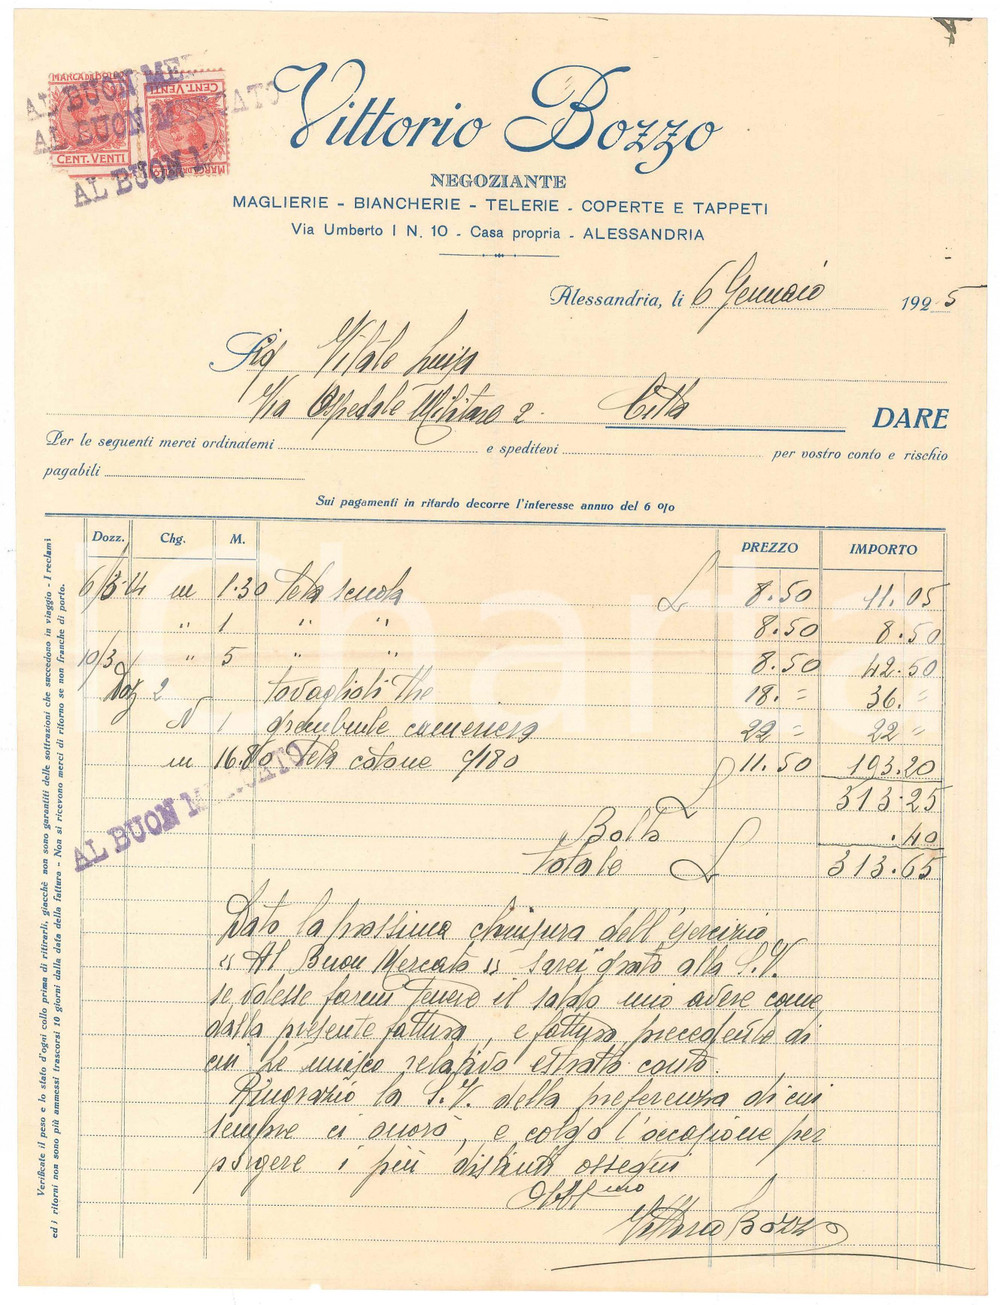 MARCA DA BOLLO
CENT. VENTI
CENT. VENTI
MARCA DA BOLLO
AL BUON MER
AL BUON MERCATO
AL BUON M
Vittorio Bozzo
NEGOZIANTE
MAGLIERIE - BIANCHERIE - TELERIE - COPERTE E TAPPETI
Via Umberto I N. 10 - Casa propria - ALESSANDRIA
Alessandria, li 6 Gennaio 1925
Sig Vitale Luisa
Via Ospedale Militare 2 Città
DARE
Per le seguenti merci ordinatemi e speditevi per vostro conto e rischio
pagabili
Sui pagamenti in ritardo decorre l'interesse annuo del 6 o/o
Dozz. Chg. M. PREZZO IMPORTO
6/3-24 m 1.30 Tela scuola L 8.50 11.05
" 1 " " 8.50 8.50
10/3 " 5 " " 8.50 42.50
Doz 2 tovaglioli the 18. = 36. =
N 1 grembiule cameriera 22 = 22 =
m 16.80 Tela cotone c/180 L 11.50 193.20
L 313.25
Bollo .40
Totale L 313.65
AL BUON MERCATO
Dato la prossima chiusura dell'esercizio
" Al Buon Mercato " sarei grato alla S.V.
se volesse farmi tenere il saldo mio avere come
dalla presente fattura, e fattura precedente di
cui Le unisco relativo estratto conto.
Ringrazio la S.V. della preferenza di cui
sempre ci onorò, e colgo l'occasione per
porgere i più distinti ossequi
Obbl mo
Vittorio Bozzo
Verificate il peso e lo stato d'ogni collo prima di ritirarli, giacchè non sono garantiti delle sottrazioni che succedono in viaggio - I reclami
ed i ritorni non sono più ammessi trascorsi 10 giorni dalla data della fattura - Non si ricevono merci di ritorno se non franche di porto.
Charta